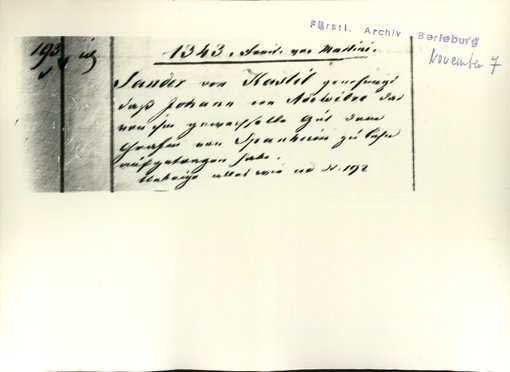 Fürstl. Archiv Berleburg
November 7
193
1343. Freit. vor Martini.
Sander von Kastil genehmigt
daß Johann von das
von ihm gut dem
Grafen von Spanheim zu Lehn
aufgetragen habe.
alles wie ad N. 192